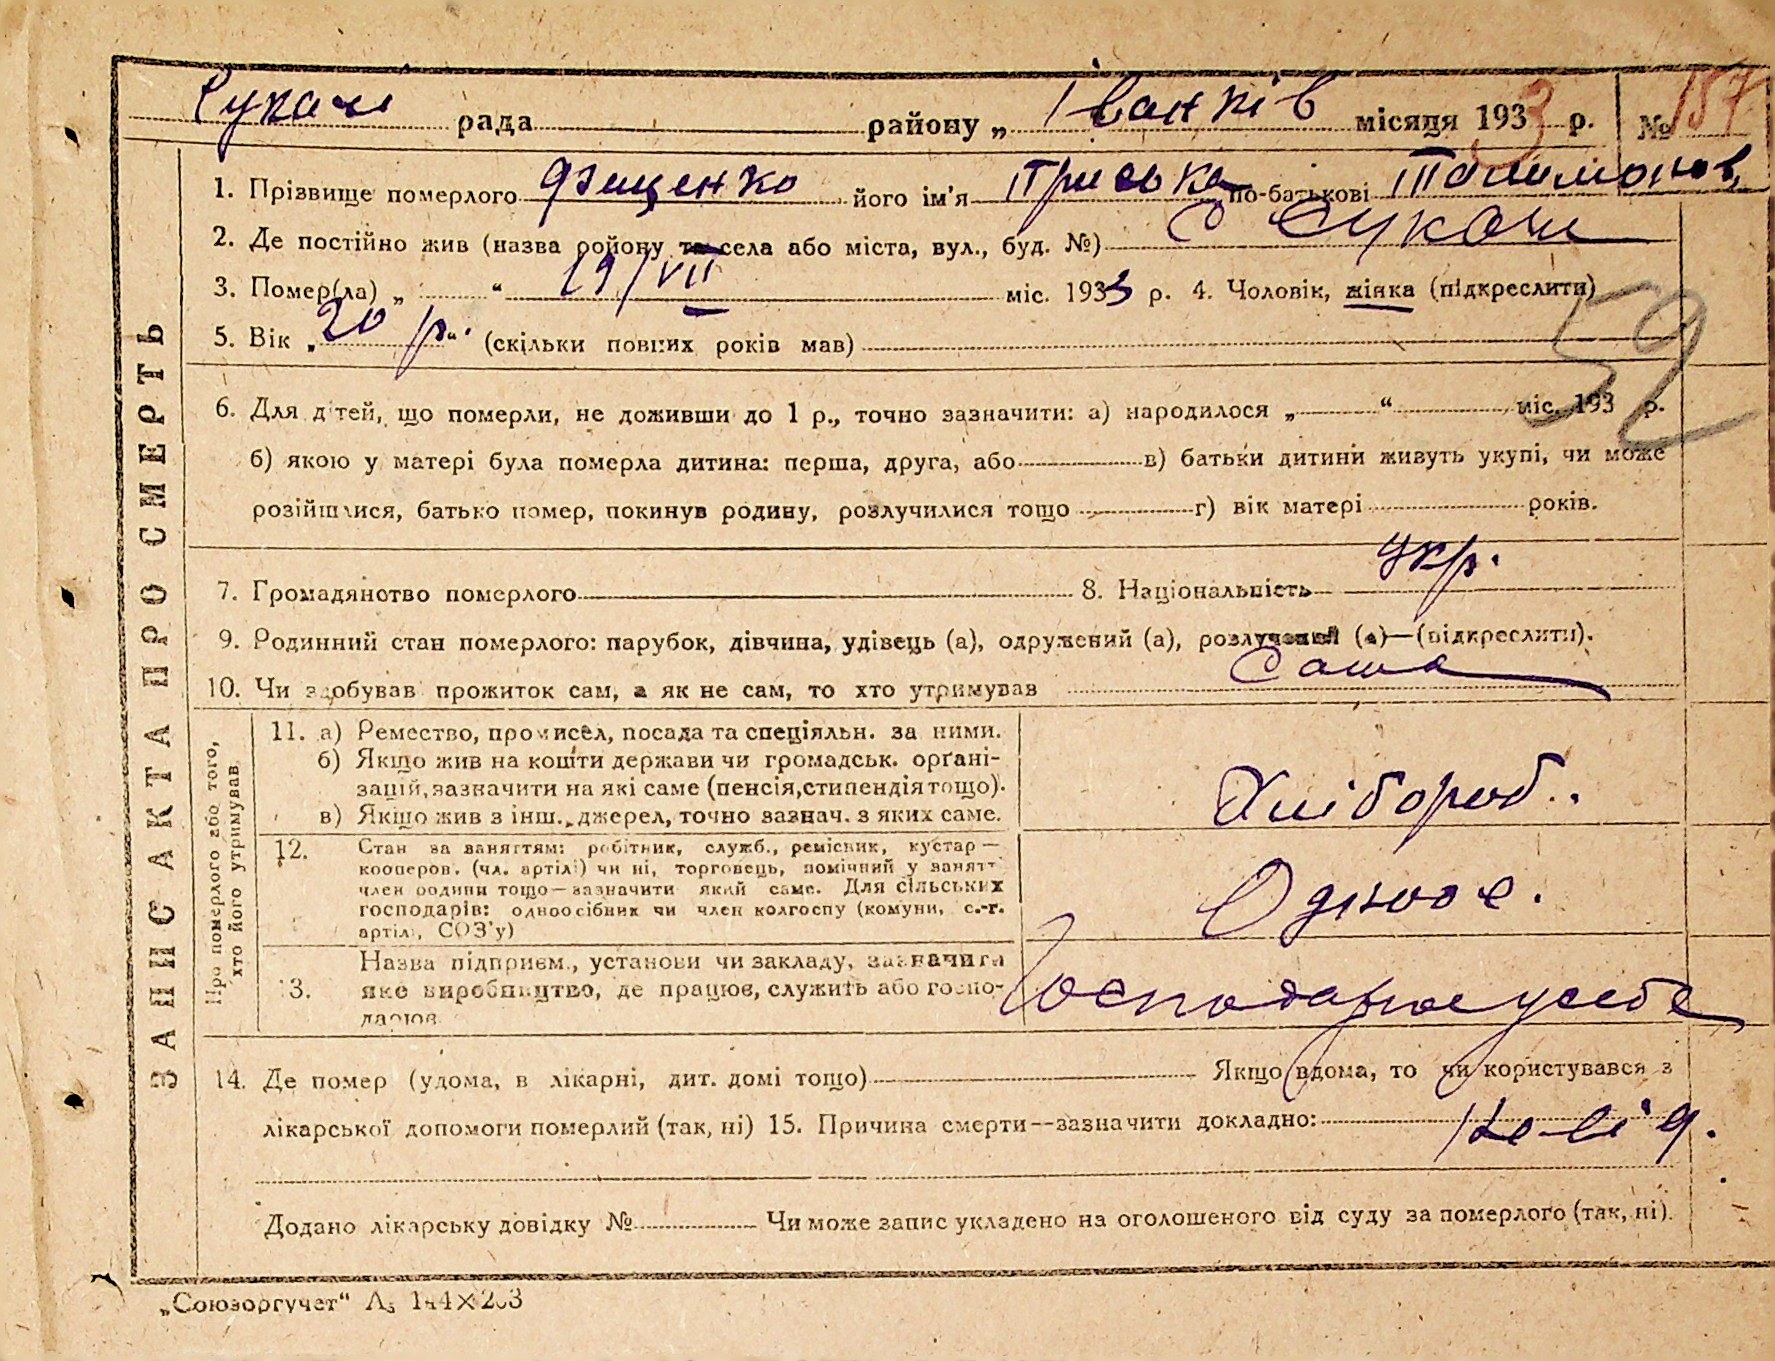 Сукачі рада района „ Іванків місяця 1933 р. № 157
1. Прізвище померлого Фещенко його ім'я Приська по-батькові
2. Де постійно жив (назва ройону та села або міста, вул., буд. №) с Сукачі
3. Помер(ла) „ “ 19/VII міс. 1933 р. 4. Чоловік, жінка (підкреслити)
5. Вік „ 20 р. “ (скільки повних років мав)
52
6. Для дітей, що померли, не доживши до 1 р., точно зазначити: а) народилося „ “ міс. 193 р.
б) якою у матері була померла дитина: перша, друга, або в) батьки дитини живуть укупі, чи може
розійшлися, батько помер, покинув родину, розлучилися тощо г) вік матері років.
7. Громадянство померлого 8. Національність укр.
9. Родинний стан померлого: парубок, дівчина, удівець (а), одружений (а), розлучений (а)—(підкреслити).
10. Чи здобував прожиток сам, а як не сам, то хто утримував Сама
ЗАПИС АКТА ПРО СМЕРТЬ
Про померлого або того,
хто його утримував
11. а) Ремество, промисел, посада та спеціяльн. за ними.
б) Якщо жив на кошти держави чи громадськ. орґані-
зацій, зазначити на які саме (пенсія, стипендія тощо).
в) Якщо жив з інш. джерел, точно зазнач. з яких саме.
Хлібороб.
12. Стан за заняттям: робітник, служб., ремісник, кустар —
кооперов. (чл. артілі) чи ні, торговець, помічний у занятт
член родини тощо — зазначити який саме. Для сільських
господарів: одноосібник чи член колгоспу (комуни, с.-г.
артілі, СОЗ'у)
Одноос.
13. Назва підприєм., установи чи закладу, зазначити
яке виробництво, де працює, служить або госпо-
дарює
Господарює у себе
14. Де помер (удома, в лікарні, дит. домі тощо) Якщо вдома, то чи користувався з
лікарської допомоги померлий (так, ні) 15. Причина смерти—зазначити докладно:
Додано лікарську довідку № Чи може запис укладено на оголошеного від суду за померлого (так, ні).
„Союзоргучет“